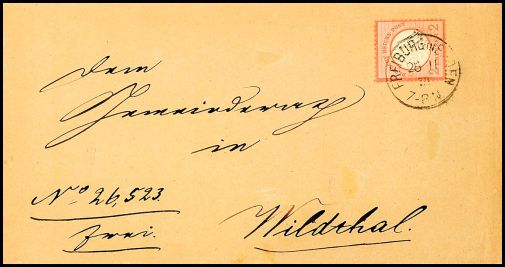 FREIBURG IN BADEN
26 11
7-8 N
Dem
Gemeinderath
in
No 26,523.
frei.
Wildthal.